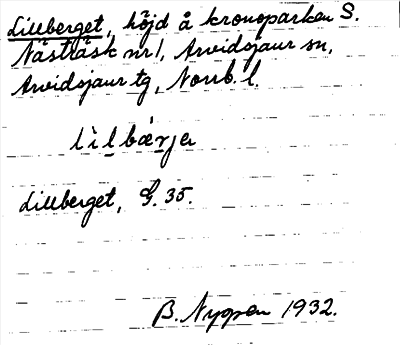 Lillberget, höjd å kronoparken S.
Nästräsk nr 1, Arvidsjaur sn,
Arvidsjaur tg, Norrb. l.
lìlbærje
Lillberget, G. 35.
B. Nygren 1932.